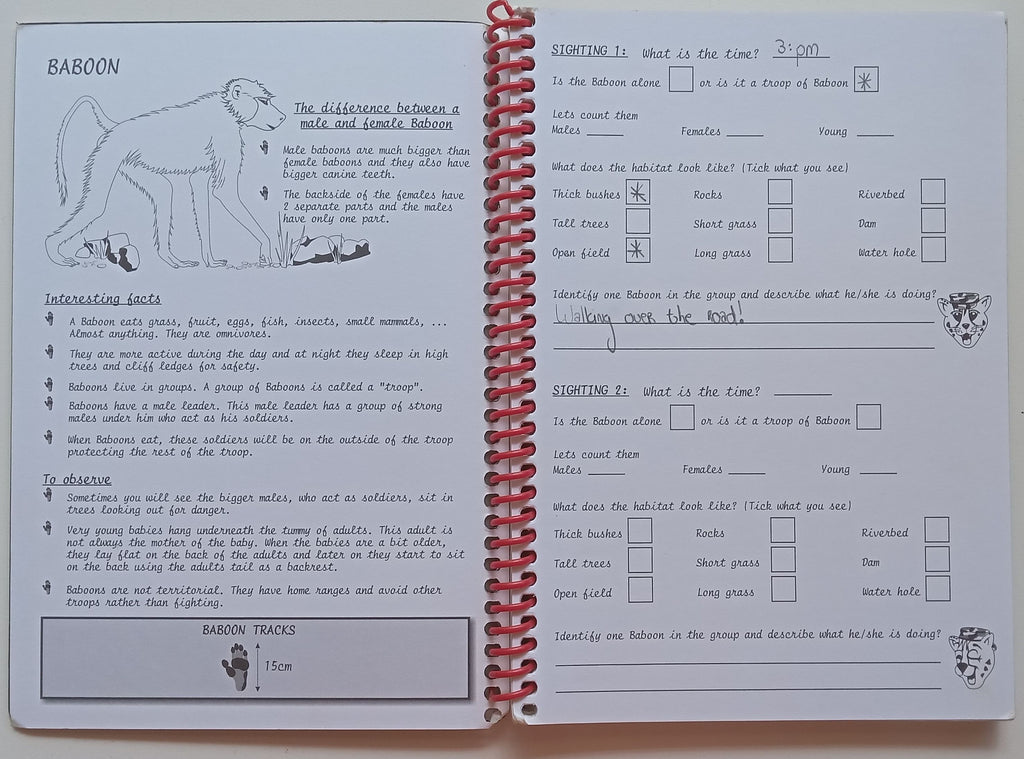 BABOON
The difference between a
male and female Baboon
Male baboons are much bigger than
female baboons and they also have
bigger canine teeth.
The backside of the females have
2 separate parts and the males
have only one part.
Interesting facts
A Baboon eats grass, fruit, eggs, fish, insects, small mammals, ...
Almost anything. They are omnivores.
They are more active during the day and at night they sleep in high
trees and cliff ledges for safety.
Baboons live in groups. A group of Baboons is called a "troop".
Baboons have a male leader. This male leader has a group of strong
males under him who act as his soldiers.
When Baboons eat, these soldiers will be on the outside of the troop
protecting the rest of the troop.
To observe
Sometimes you will see the bigger males, who act as soldiers, sit in
trees looking out for danger.
Very young babies hang underneath the tummy of adults. This adult is
not always the mother of the baby. When the babies are a bit older,
they lay flat on the back of the adults and later on they start to sit
on the back using the adults tail as a backrest.
Baboons are not territorial. They have home ranges and avoid other
troops rather than fighting.
BABOON TRACKS
15cm
SIGHTING 1: What is the time? 3:pm
Is the Baboon alone or is it a troop of Baboon
Lets count them
Males Females Young
What does the habitat look like? (Tick what you see)
Thick bushes Rocks Riverbed
Tall trees Short grass Dam
Open field Long grass Water hole
Identify one Baboon in the group and describe what he/she is doing?
Walking over the road!
SIGHTING 2: What is the time?
Is the Baboon alone or is it a troop of Baboon
Lets count them
Males Females Young
What does the habitat look like? (Tick what you see)
Thick bushes Rocks Riverbed
Tall trees Short grass Dam
Open field Long grass Water hole
Identify one Baboon in the group and describe what he/she is doing?